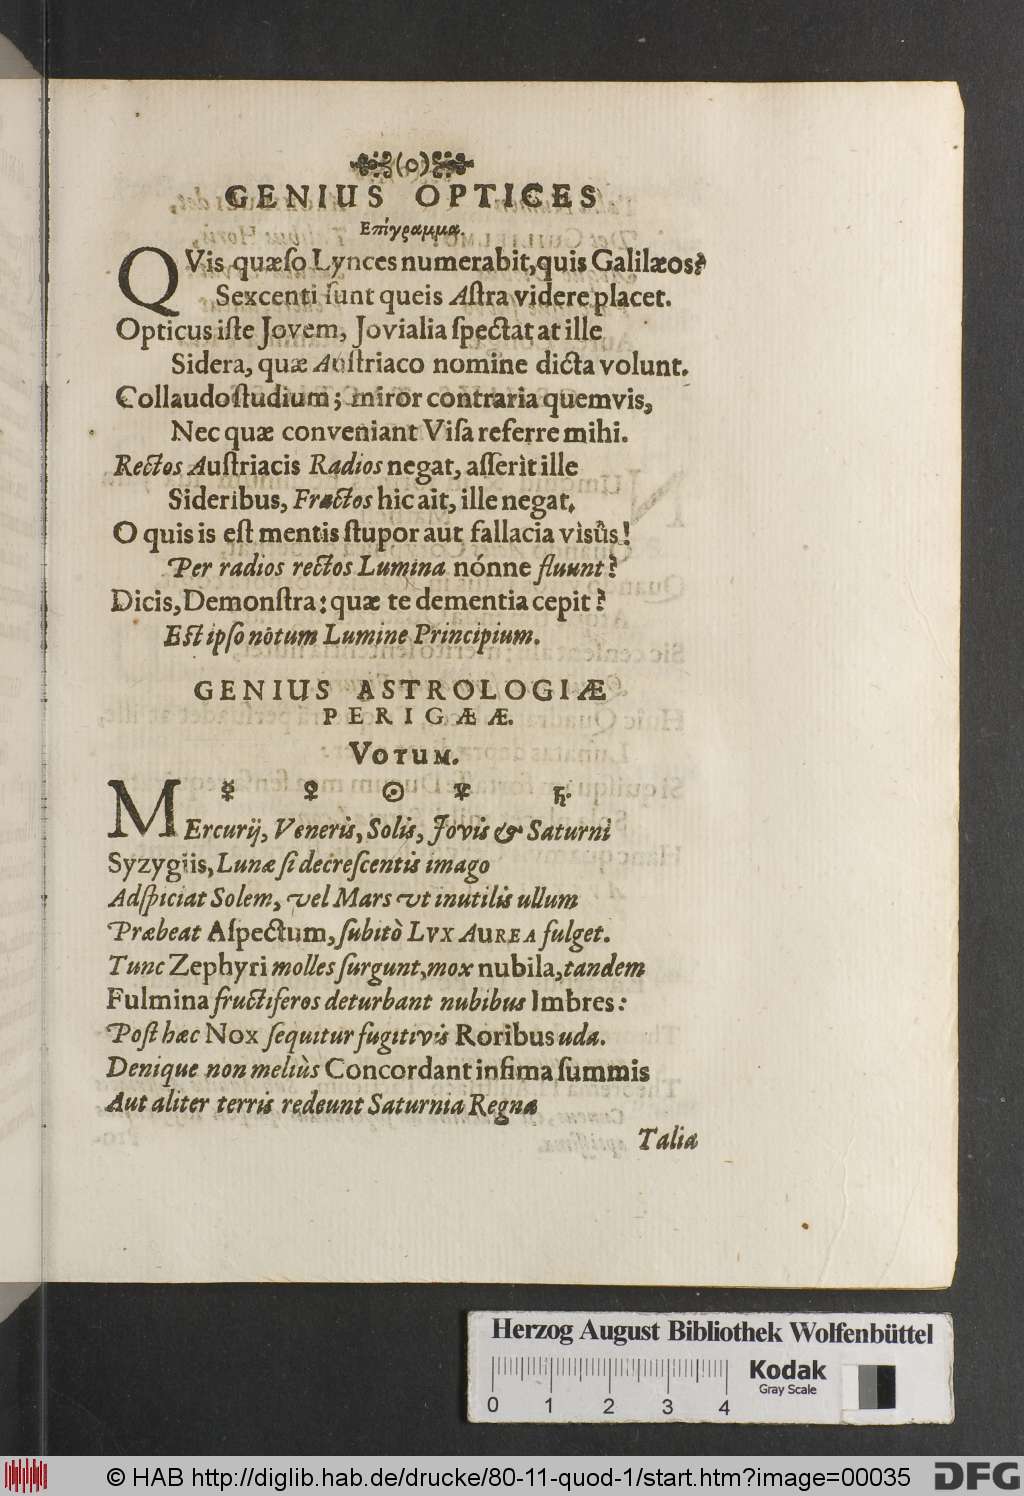 (o)
GENIUS OPTICES
Επίγραμμα.
QVis quæſo Lynces numerabit, quis Galilæos?
Sexcenti ſunt queis Aſtra videre placet.
Opticus iſte Jovem, Jovialia ſpectat at ille
Sidera, quæ Auſtriaco nomine dicta volunt.
Collaudo ſtudium; miror contraria quemvis,
Nec quæ conveniant Viſa referre mihi.
Rectos Auſtriacis Radios negat, aſſerit ille
Sideribus, Fractos hic ait, ille negat.
O quis is eſt mentis ſtupor aut fallacia visûs!
Per radios rectos Lumina nónne fluunt?
Dicis, Demonſtra: quæ te dementia cepit?
Eſt ipſo nòtum Lumine Principium.
GENIUS ASTROLOGIÆ
PERIGÆÆ.
VOTUM.
☿ ♀ ☉ ♃ ♄.
MErcurij, Veneris, Solis, Jovis & Saturni
Syzygiis, Lunæ ſi decreſcentis imago
Adſpiciat Solem, vel Mars vt inutilis ullum
Præbeat Aſpectum, ſubitò LVX AUREA fulget.
Tunc Zephyri molles ſurgunt, mox nubila, tandem
Fulmina fructiferos deturbant nubibus Imbres:
Poſt hæc Nox ſequitur fugitivis Roribus uda.
Denique non meliùs Concordant infima ſummis
Aut aliter terris redeunt Saturnia Regna
Talia
Herzog August Bibliothek Wolfenbüttel
Kodak
Gray Scale
0 1 2 3 4
© HAB http://diglib.hab.de/drucke/80-11-quod-1/start.htm?image=00035
DFG